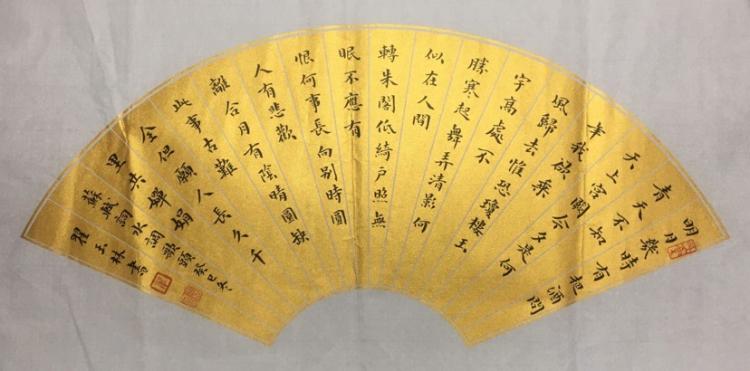 明月幾時有把酒問
青天不知
天上宮闕今夕是何
年我欲乘
風歸去惟恐瓊樓玉
宇高處不
勝寒起舞弄清影何
似在人間
轉朱閣低綺戶照無
眠不應有
恨何事長向別時圓
人有悲歡
離合月有陰晴圓缺
此事古難
全但願人長久千
里共嬋娟
蘇軾詞水調歌頭癸巳冬
瞿玉林書